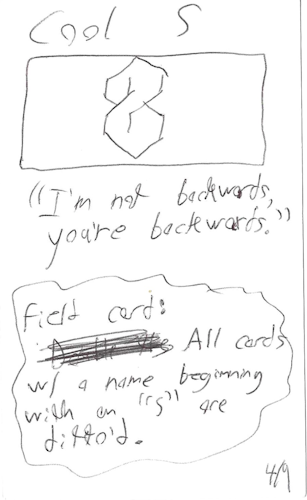 Cool S
"I'm not backwards,
you're backwards."
Field card:
All cards
w/ a name beginning
with an "s" are
ditto'd.
4/9